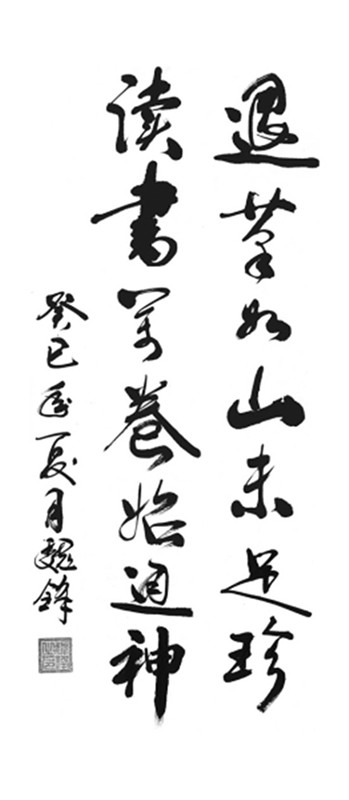 退笔如山未足珍
读书万卷始通神
癸巳年夏月魏锋